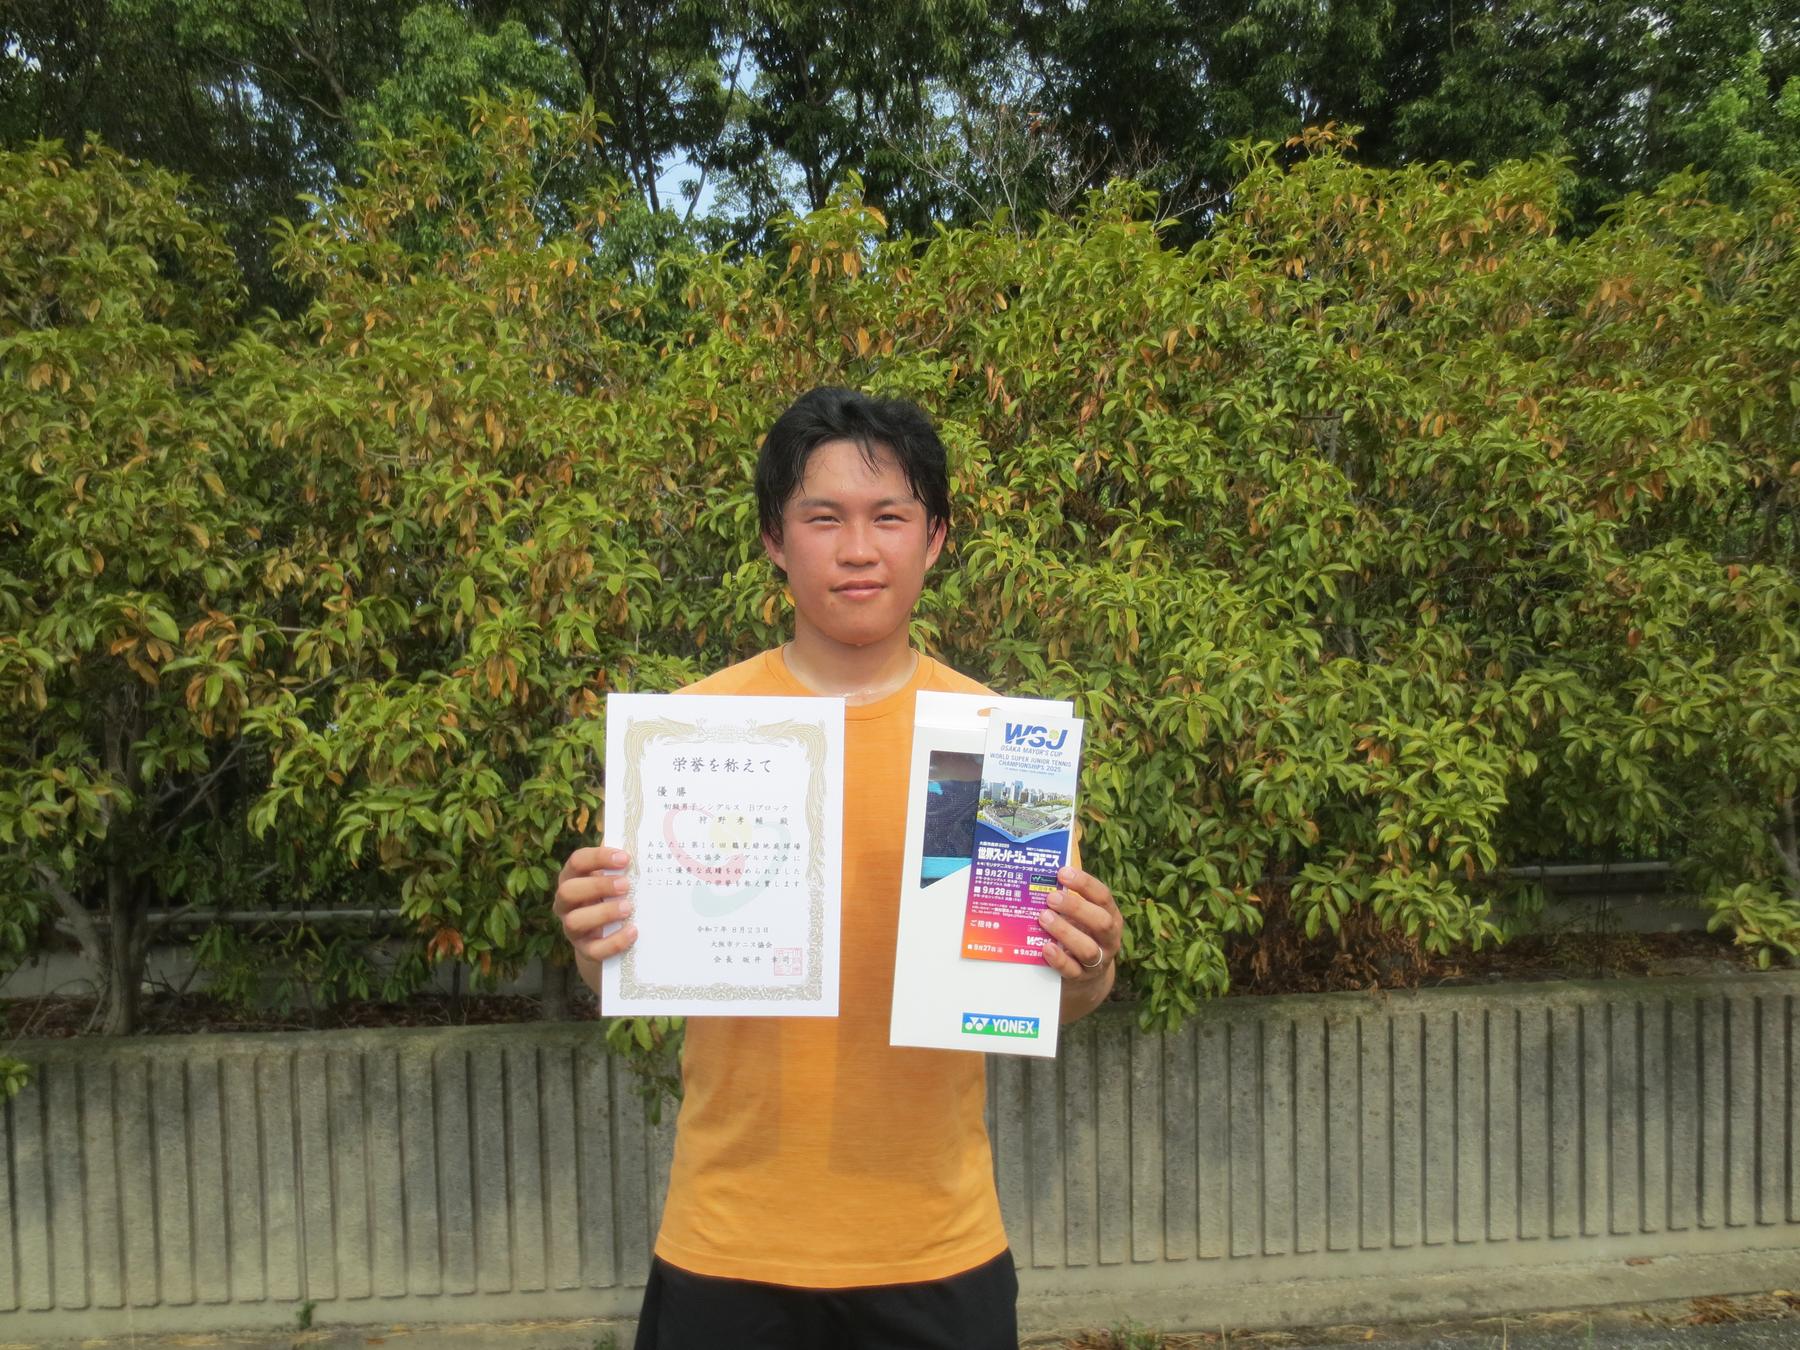 栄誉を称えて
優勝
初級男子シングルス Bブロック
狩野孝輔 殿
あなたは第14回鶴見緑地庭球場
大阪市テニス協会シングルス大会に
おいて優秀な成績を収められました
ここにあなたの栄誉を称え賞します
令和7年8月23日
大阪市テニス協会
会長 坂井 幸司
WSJ
OSAKA MAYOR'S CUP
WORLD SUPER JUNIOR TENNIS
CHAMPIONSHIPS 2025
世界スーパージュニアテニス
9月27日 土
9月28日 日
ご招待券
WSJ
9月27日 土
9月28日
YONEX